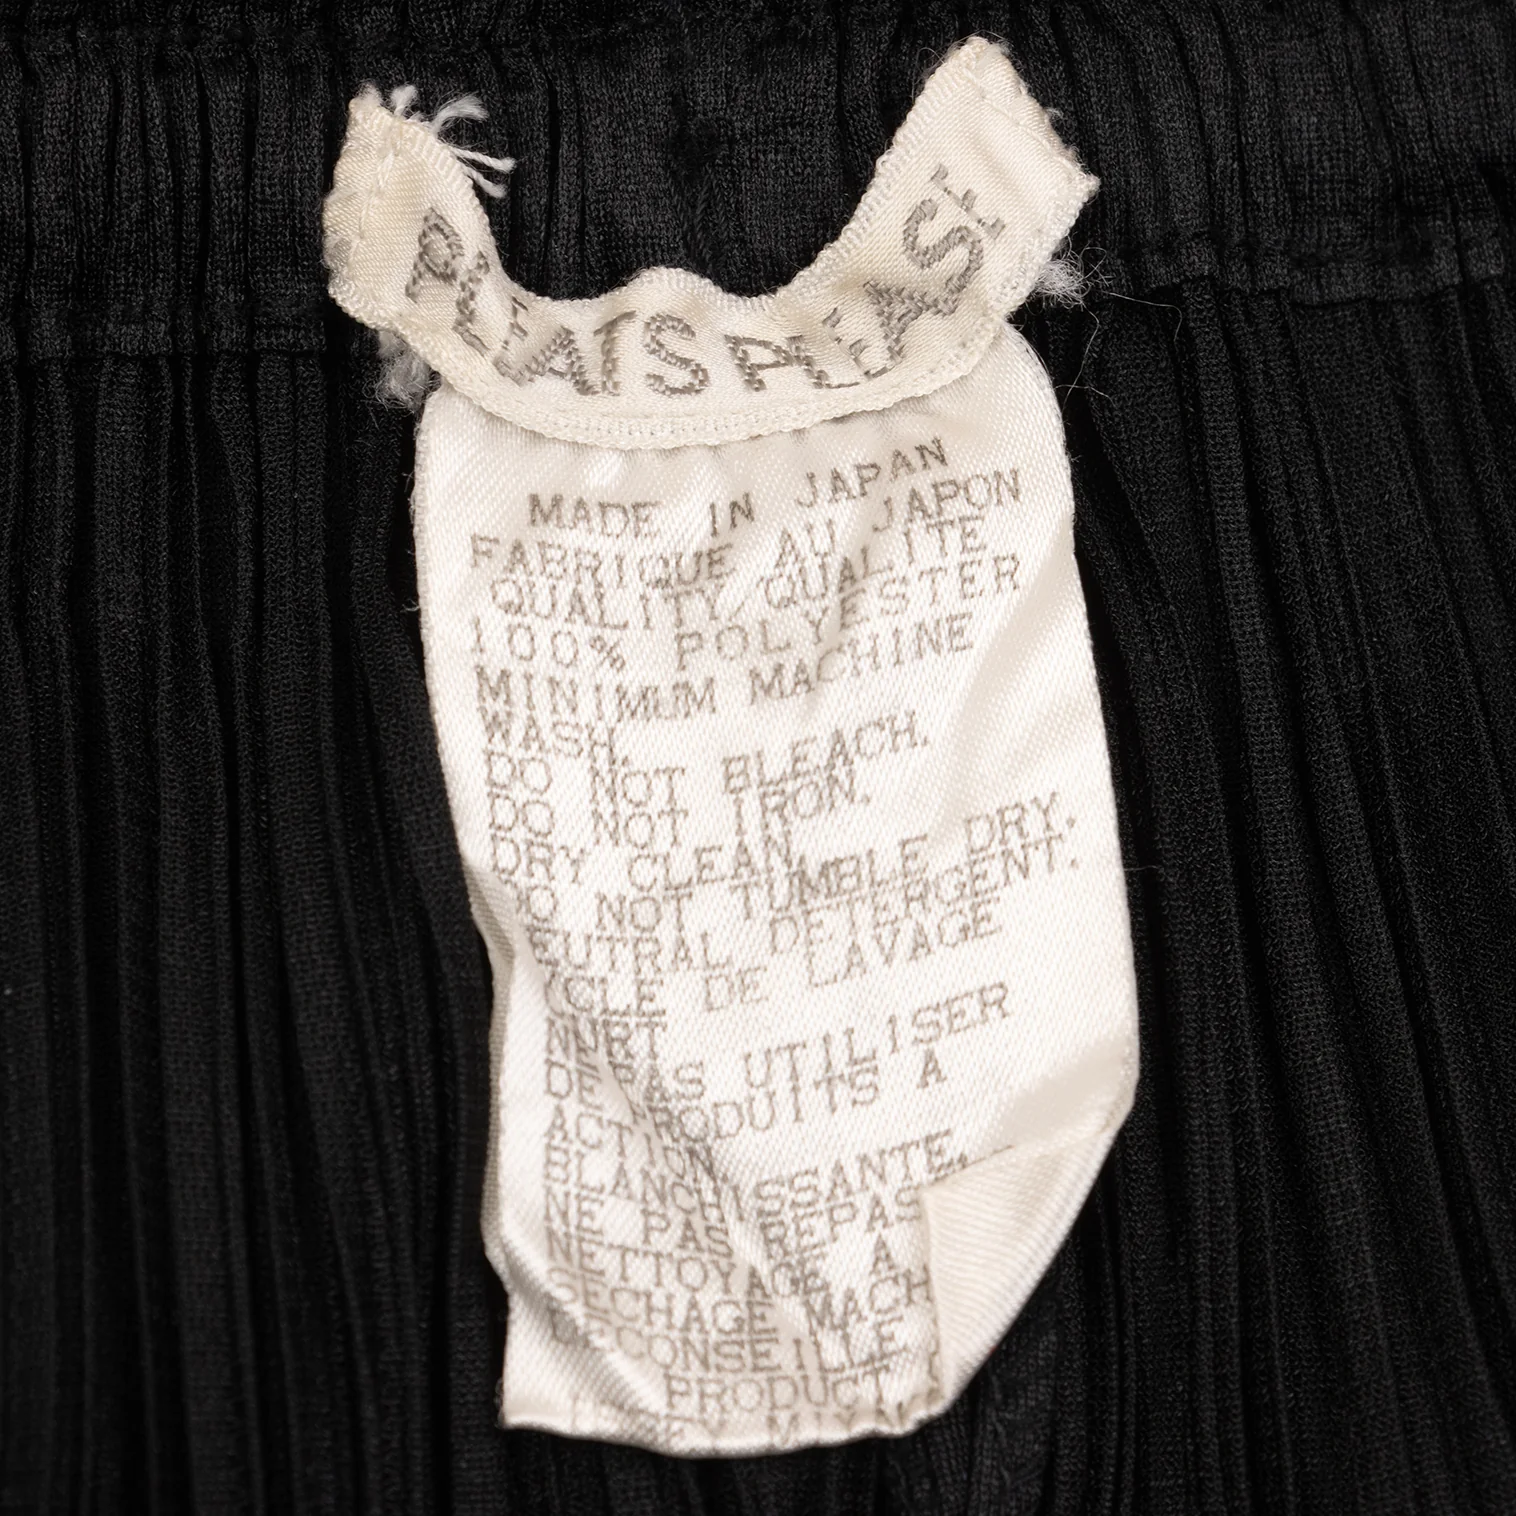 PLEATS PLEASE
MADE IN JAPAN
FABRIQUE AU JAPON
QUALITY/QUALITE
100% POLYESTER
MINIMUM MACHINE
WASH.
DO NOT BLEACH.
DO NOT IRON.
DRY CLEAN
DO NOT TUMBLE DRY.
NEUTRAL DETERGENT.
CYCLE DE LAVAGE
NE PAS UTILISER
DE PRODUITS A
ACTION
BLANCHISSANTE.
NE PAS REPAS
NETTOYAGE A
SECHAGE MACH
DECONSEILLE
PRODUCT